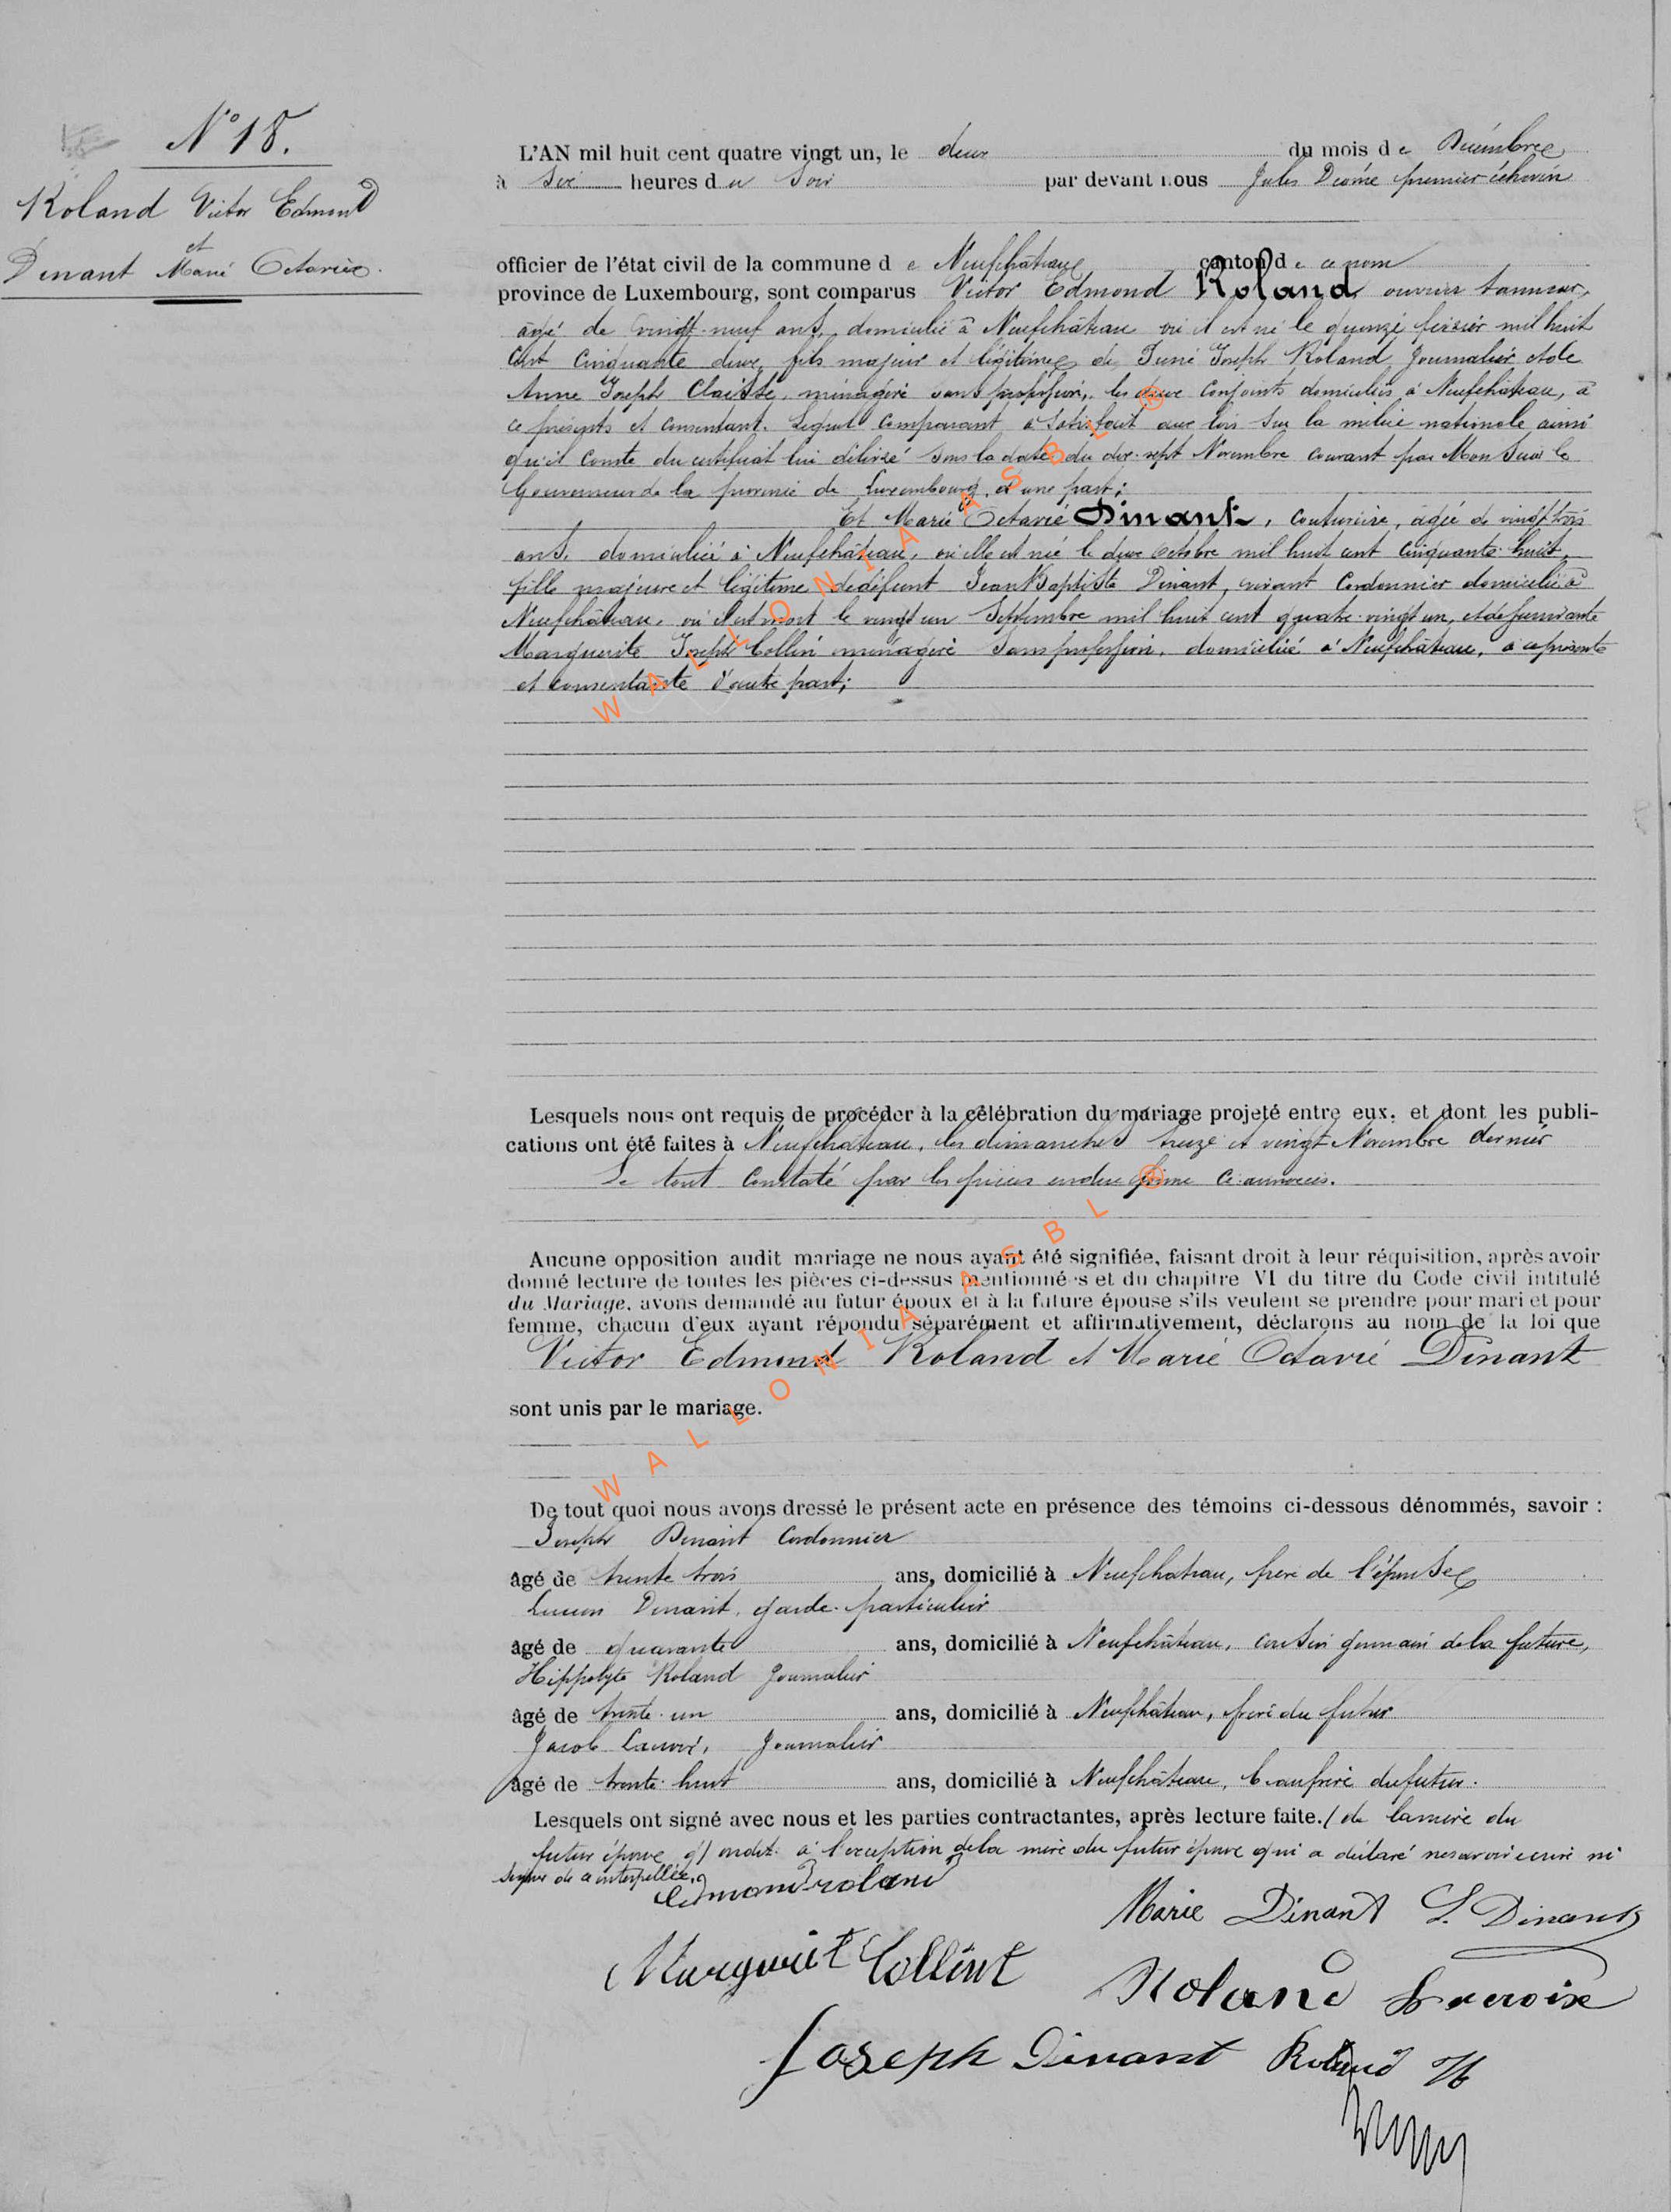 N° 18.
Roland Victor Edmond
et
Dinant Marie Octavie.
L'AN mil huit cent quatre vingt un, le deux du mois de Décembre
à Six heures du Soir par devant nous Jules premier échevin
officier de l'état civil de la commune de Neufchâteau canton de ce nom
province de Luxembourg, sont comparus Victor Edmond Roland, ouvrier tanneur,
âgé de vingt-neuf ans, domicilié à Neufchâteau où il est né le quinze février mil huit
cent cinquante deux, fils majeur et légitime de Joseph Roland Journalier et de
Anne Joseph Claisse, ménagère sans profession, les deux conjoints domiciliés à Neufchâteau, à
ce présents et consentant. Lequel comparant a satisfait aux lois sur la milice nationale ainsi
qu'il conste du certificat lui délivré sous la date du dix-sept Novembre courant par Monsieur le
Gouverneur de la province de Luxembourg, d'une part;
Et Marie Octavie Dinant, couturière, âgée de vingt trois
ans, domiciliée à Neufchâteau, où elle est née le deux Octobre mil huit cent cinquante-huit,
fille majeure et légitime de défunt Jean Baptiste Dinant, vivant Cordonnier domicilié à
Neufchâteau, où il est mort le vingt un Septembre mil huit cent quatre-vingt un, et de survivante
Marguerite Joseph Collin ménagère sans profession, domiciliée à Neufchâteau, à ce présente
et consentante d'autre part;
Lesquels nous ont requis de procéder à la célébration du mariage projeté entre eux, et dont les publi-
cations ont été faites à Neufchâteau, les dimanches treize et vingt Novembre dernier
Le tout constaté par les pièces en due forme ci-annexées.
Aucune opposition audit mariage ne nous ayant été signifiée, faisant droit à leur réquisition, après avoir
donné lecture de toutes les pièces ci-dessus mentionnées et du chapitre VI du titre du Code civil intitulé
du Mariage, avons demandé au futur époux et à la future épouse s'ils veulent se prendre pour mari et pour
femme, chacun d'eux ayant répondu séparément et affirmativement, déclarons au nom de la loi que
Victor Edmond Roland et Marie Octavie Dinant
sont unis par le mariage.
De tout quoi nous avons dressé le présent acte en présence des témoins ci-dessous dénommés, savoir :
Joseph Dinant Cordonnier
âgé de trente trois ans, domicilié à Neufchateau, frère de l'épouse
Lucien Dinant, garde-particulier
âgé de quarante ans, domicilié à Neufchâteau, cousin germain de la future,
Hippolyte Roland Journalier
âgé de trente-un ans, domicilié à Neufchâteau, frère du futur
Jacob Lacroix, Journalier
âgé de trente-huit ans, domicilié à Neufchâteau, beau frère du futur.
Lesquels ont signé avec nous et les parties contractantes, après lecture faite./ de la mère du
futur époux à l'exception de la mère du futur époux qui a déclaré ne savoir écrire ni
signer de ce interpellée.
Edmond roland
Marie Dinant L. Dinant
Marguerit Collint
Roland Lacroix
Joseph Dinant Roland H
WALLONIA ASBL ®
WALLONIA ASBL ®